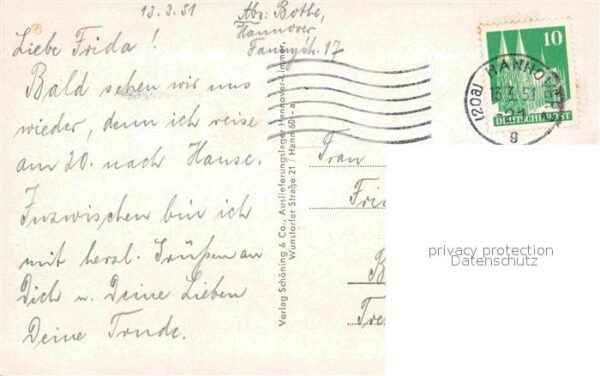 13.3.51
Abs: Bothe,
Hannover
Fannystr. 17
Liebe Frida!
Bald sehen wir uns
wieder, denn ich reise
am 20. nach Hause.
Inzwischen bin ich
mit herzl. Grüßen an
Dich u. Deine Lieben
Deine Trude.
Verlag Schöning & Co., Auslieferungslager Hannover-Limmer,
Wunstorfer Straße 21 / Hann 60
Frau
Fri
B
Tre
10
DEUTSCHE POST
(20a) HANNOVER
13.3.51
g
privacy protection
Datenschutz